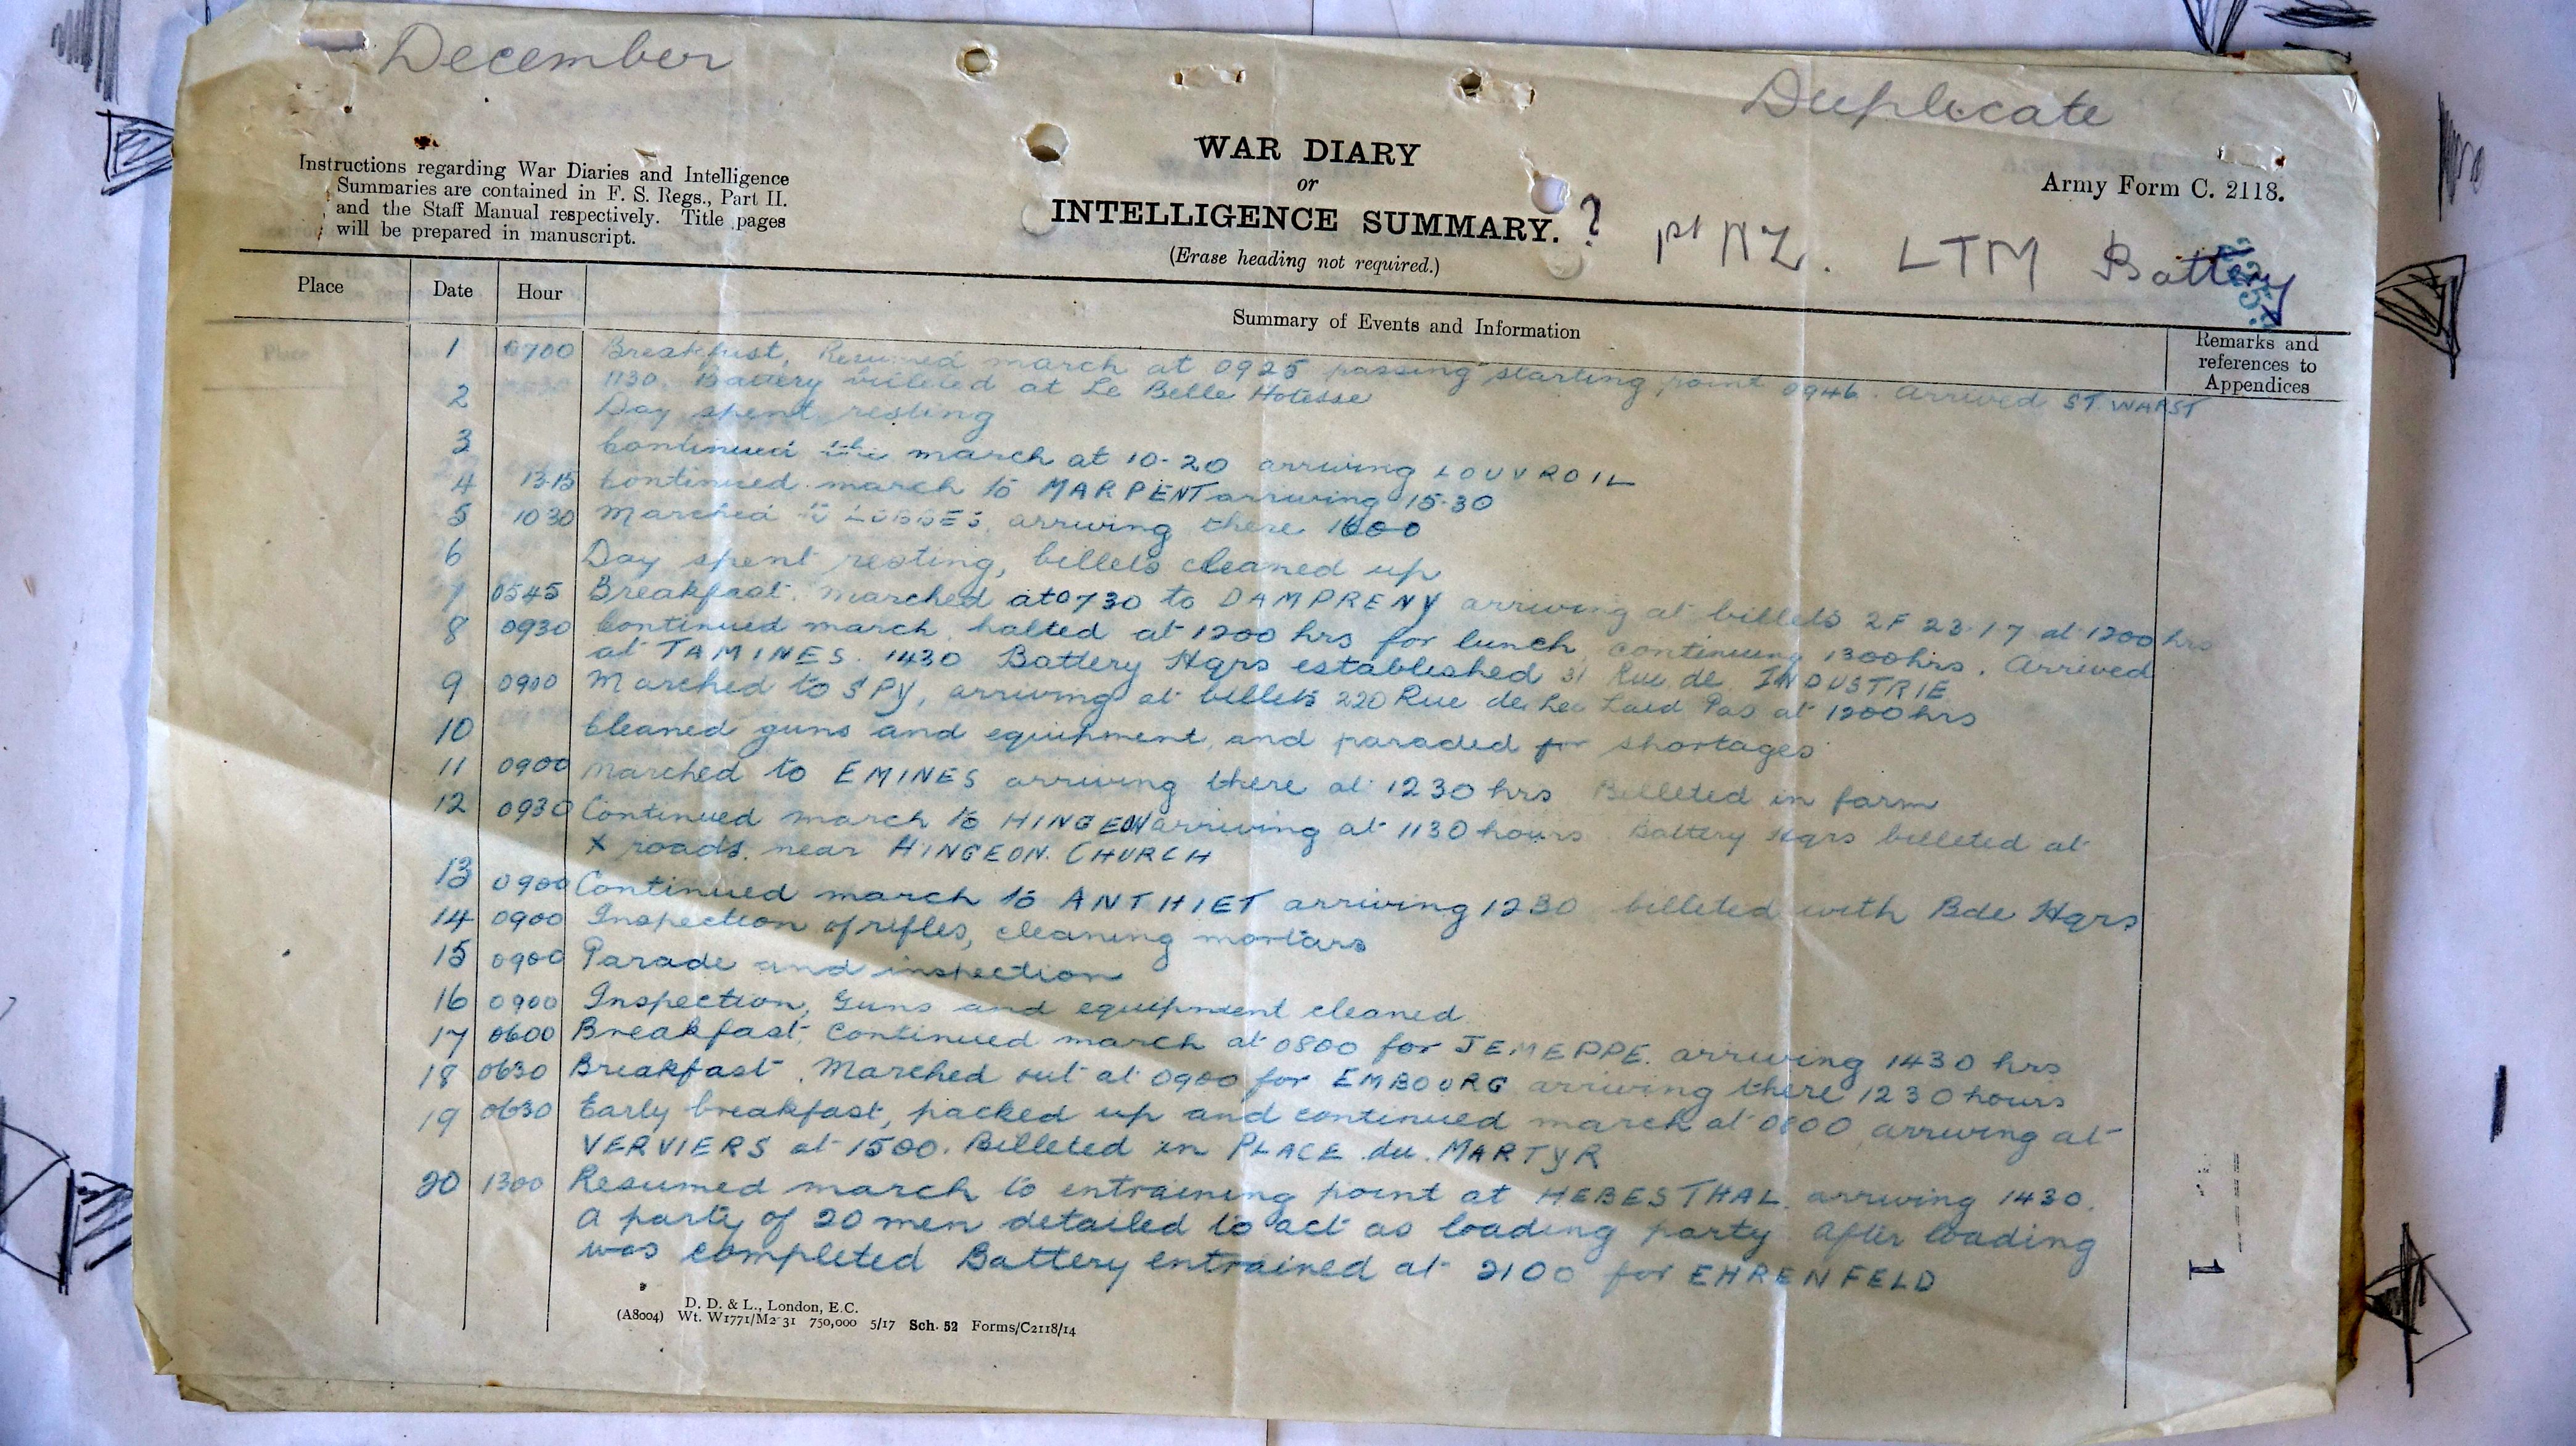 December
Duplicate
Instructions regarding War Diaries and Intelligence
Summaries are contained in F. S. Regs., Part II.
and the Staff Manual respectively. Title pages
will be prepared in manuscript.
WAR DIARY
or
INTELLIGENCE SUMMARY.
(Erase heading not required.)
Army Form C. 2118.
? 1st NZ. LTM Battery
Place Date Hour Summary of Events and Information Remarks and
references to
Appendices
1 0700 Breakfast, Resumed march at 0925 passing starting point 0946. Arrived ST. WAAST
1130. Battery billeted at Le Belle Hotesse
2 Day spent resting
3 Continued the march at 10-20 arriving LOUVROIL
4 13-15 Continued march to MARPENT arriving 15-30
5 1030 Marched to LOBBES, arriving there 1600
6 Day spent resting, billets cleaned up
7 0545 Breakfast. Marched at 0730 to DAMPRENY arriving at billets 2F 23.17 at 1200 hrs
8 0930 Continued march, halted at 1200 hrs for lunch, continuing 1300 hrs. Arrived
at TAMINES. 1430 Battery Hqrs established 31 Rue de INDUSTRIE
9 0900 Marched to SPY, arriving at billets 220 Rue de Laid Pas at 1200 hrs
10 Cleaned guns and equipment, and paraded for shortages
11 0900 Marched to EMINES arriving there at 1230 hrs Billeted in farm
12 0930 Continued march to HINGEON arriving at 1130 hours. Battery Hqrs billeted at
X roads. near HINGEON. CHURCH
13 0900 Continued march to ANTHIET arriving 1230 billeted with Bde Hqrs
14 0900 Inspection of rifles, cleaning mortars
15 0900 Parade and inspection
16 0900 Inspection, Guns and equipment cleaned
17 0600 Breakfast, continued march at 0800 for JEMEPPE. arriving 1430 hrs
18 0630 Breakfast. Marched out at 0900 for EMBOURG arriving there 1230 hours
19 0630 Early breakfast, packed up and continued march at 0800, arriving at
VERVIERS at 1500. Billeted in PLACE du. MARTYR
20 1300 Resumed march to entraining point at HEBESTHAL, arriving 1430.
A party of 20 men detailed to act as loading party. After loading
was completed Battery entrained at 2100 for EHRENFELD
D. D. & L., London, E.C.
(A8004) Wt. W1771/M2 31 750,000 5/17 Sch. 52 Forms/C2118/14